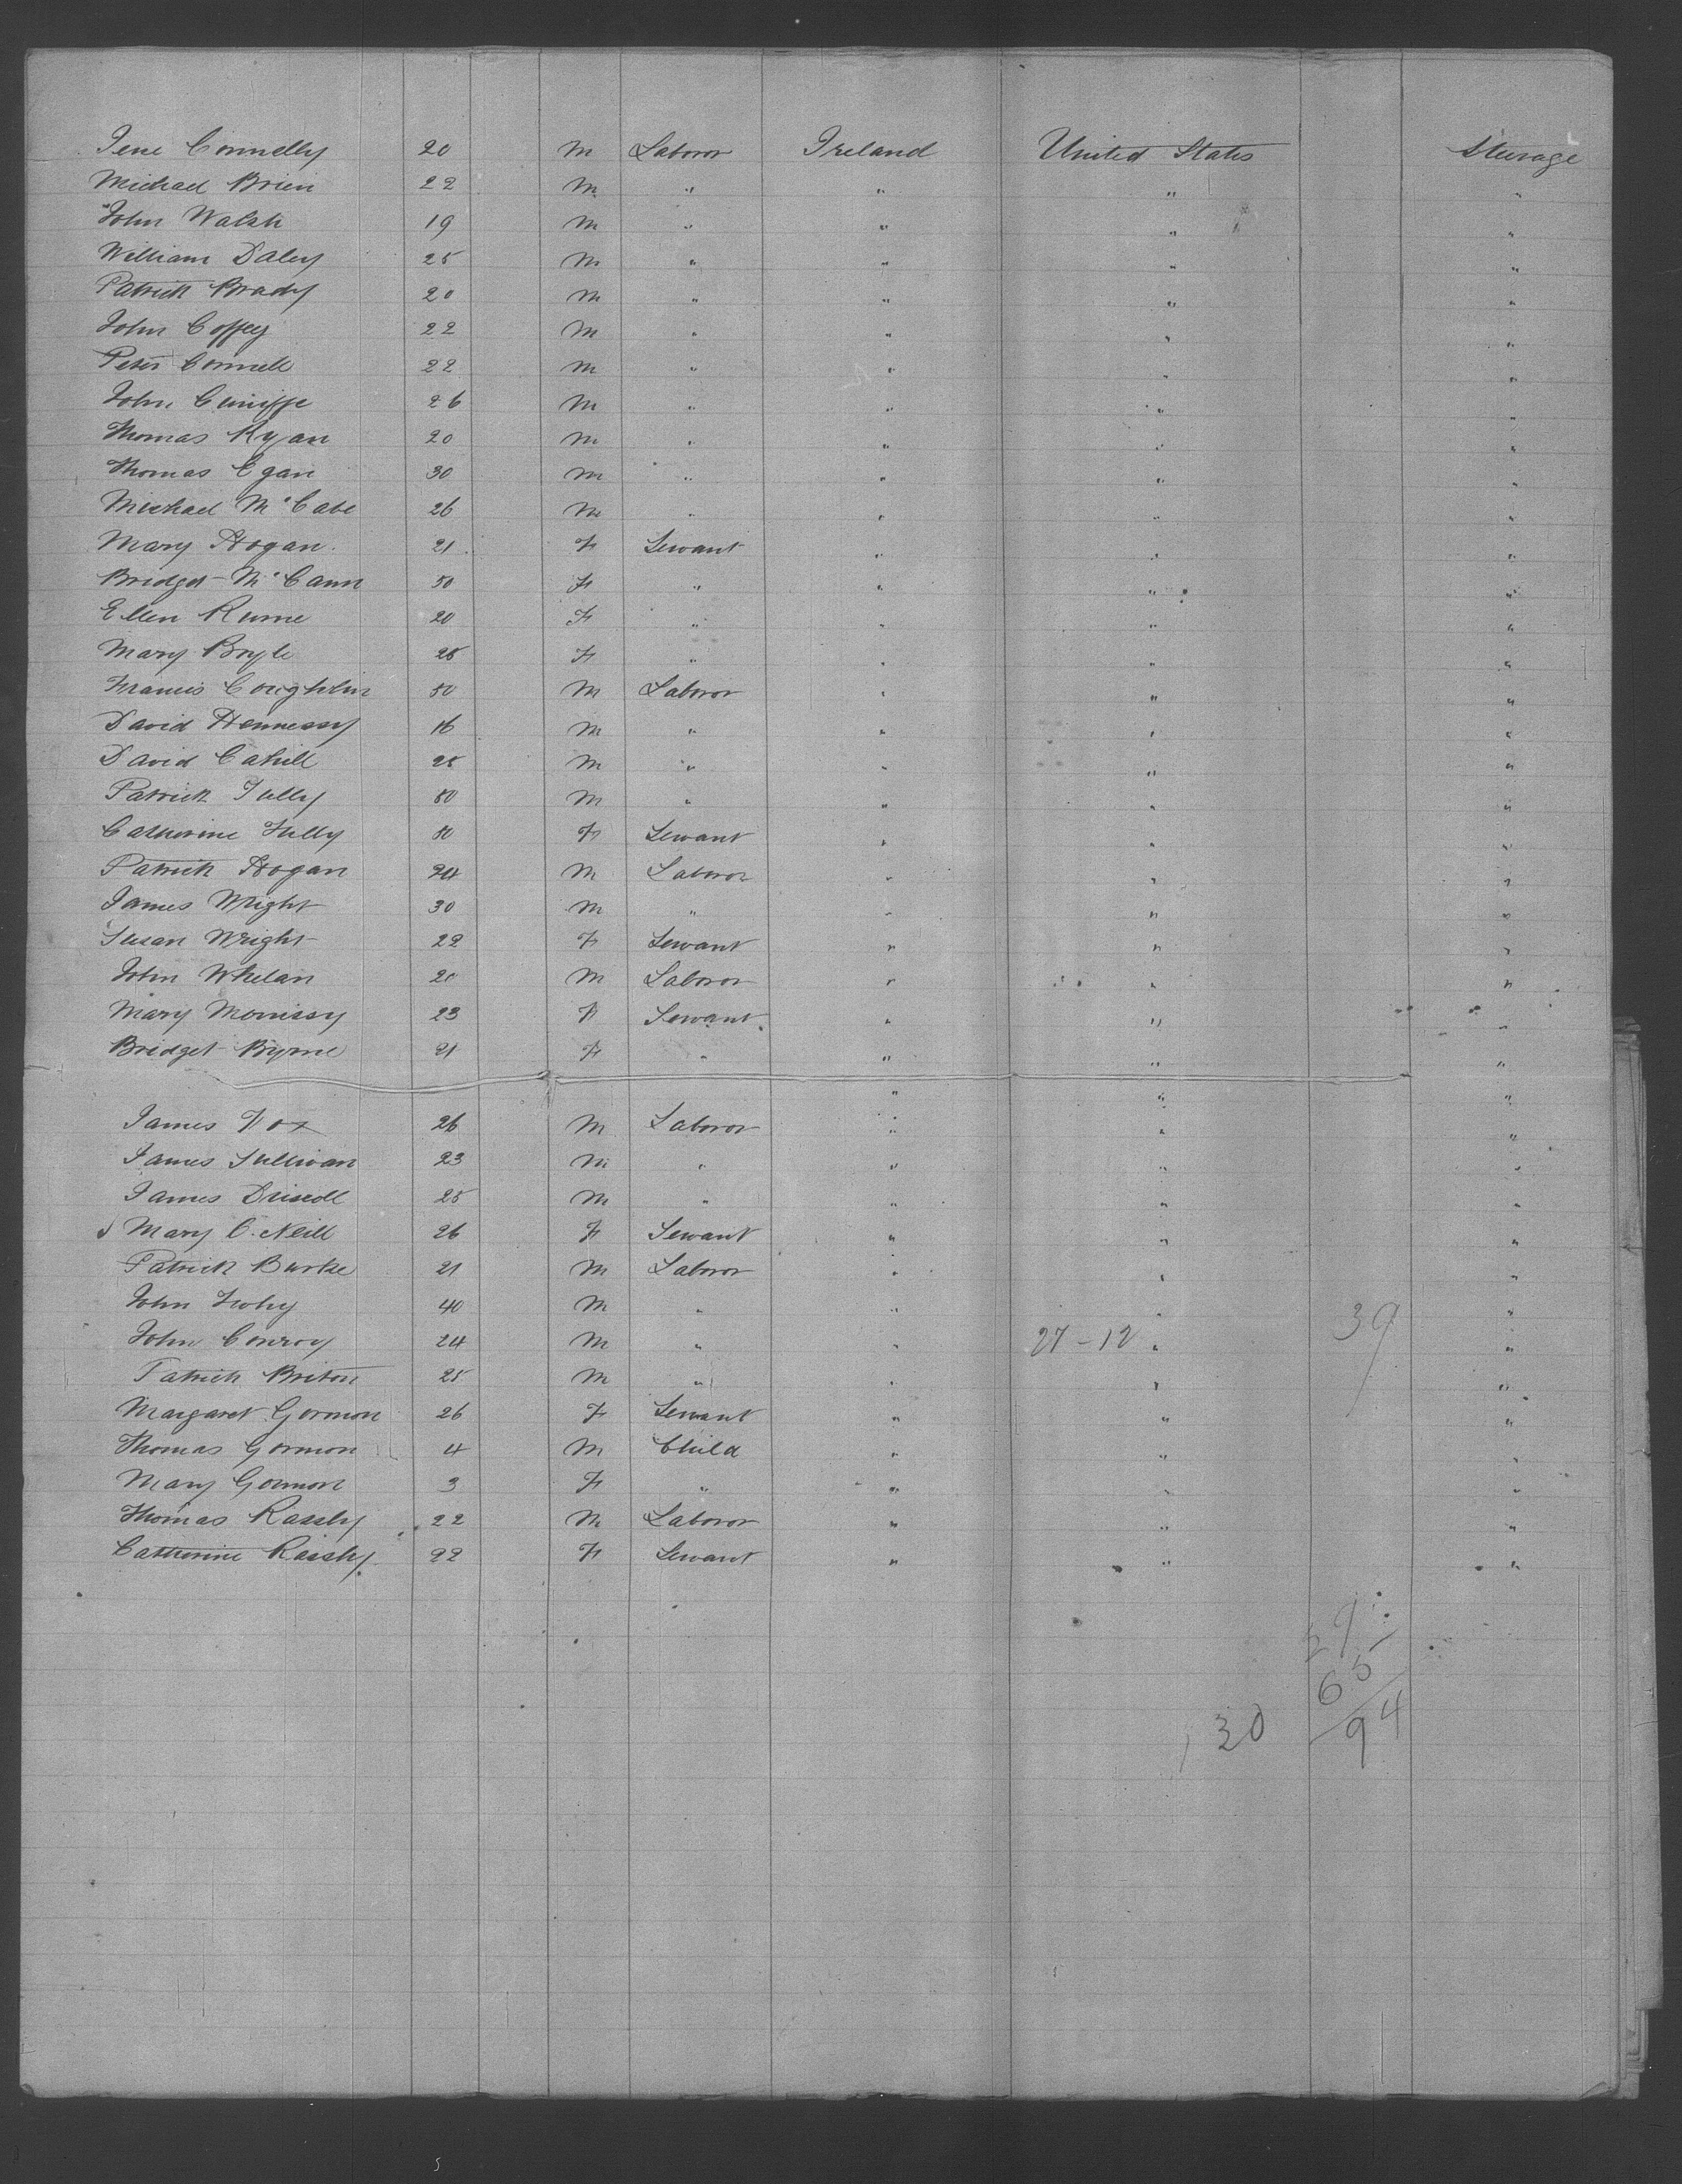 Jene Connelly 20 M Laboror Ireland United States Steerage
Michael Brien 22 M " " " "
John Walsh 19 M " " " "
William Daley 25 M " " " "
Patrick Brady 20 M " " " "
John Coffey 22 M " " " "
Peter Connell 22 M " " " "
John Cuniffe 26 M " " " "
Thomas Ryan 20 M " " " "
Thomas Egan 30 M " " " "
Michael McCabe 26 M " " " "
Mary Hogan 21 F Servant " " "
Bridget McCann 50 F " " " "
Ellen 20 F " " " "
Mary Boyle 25 F " " " "
Francis Coughlin 50 M Laboror " " "
David Hennessy 16 M " " " "
David Cahill 25 M " " " "
Patrick Tully 50 M " " " "
Catherine Tully 50 F Servant " " "
Patrick Hogan 24 M Laboror " " "
James Wright 30 M " " " "
Susan Wright 22 F Servant " " "
John Whelan 20 M Laboror " " "
Mary Morrissy 23 F Servant " " "
Bridget Byrne 21 F " " " "
" " "
James Fox 26 M Laboror " " "
James Sullivan 23 M " " " "
James Driscoll 25 M " " " "
Mary O. Neill 26 F Servant " " "
Patrick Burke 21 M Laboror " " "
John 40 M " " " "
John Conroy 24 M " " 27-12 " 39 "
Patrick Briton 25 M " " " "
Margaret Gormon 26 F Servant " " "
Thomas Gormon 4 M Child " " "
Mary Gormon 3 F " " " "
Thomas 22 M Laboror " " "
Catherine 22 F Servant " " "
65
30 94